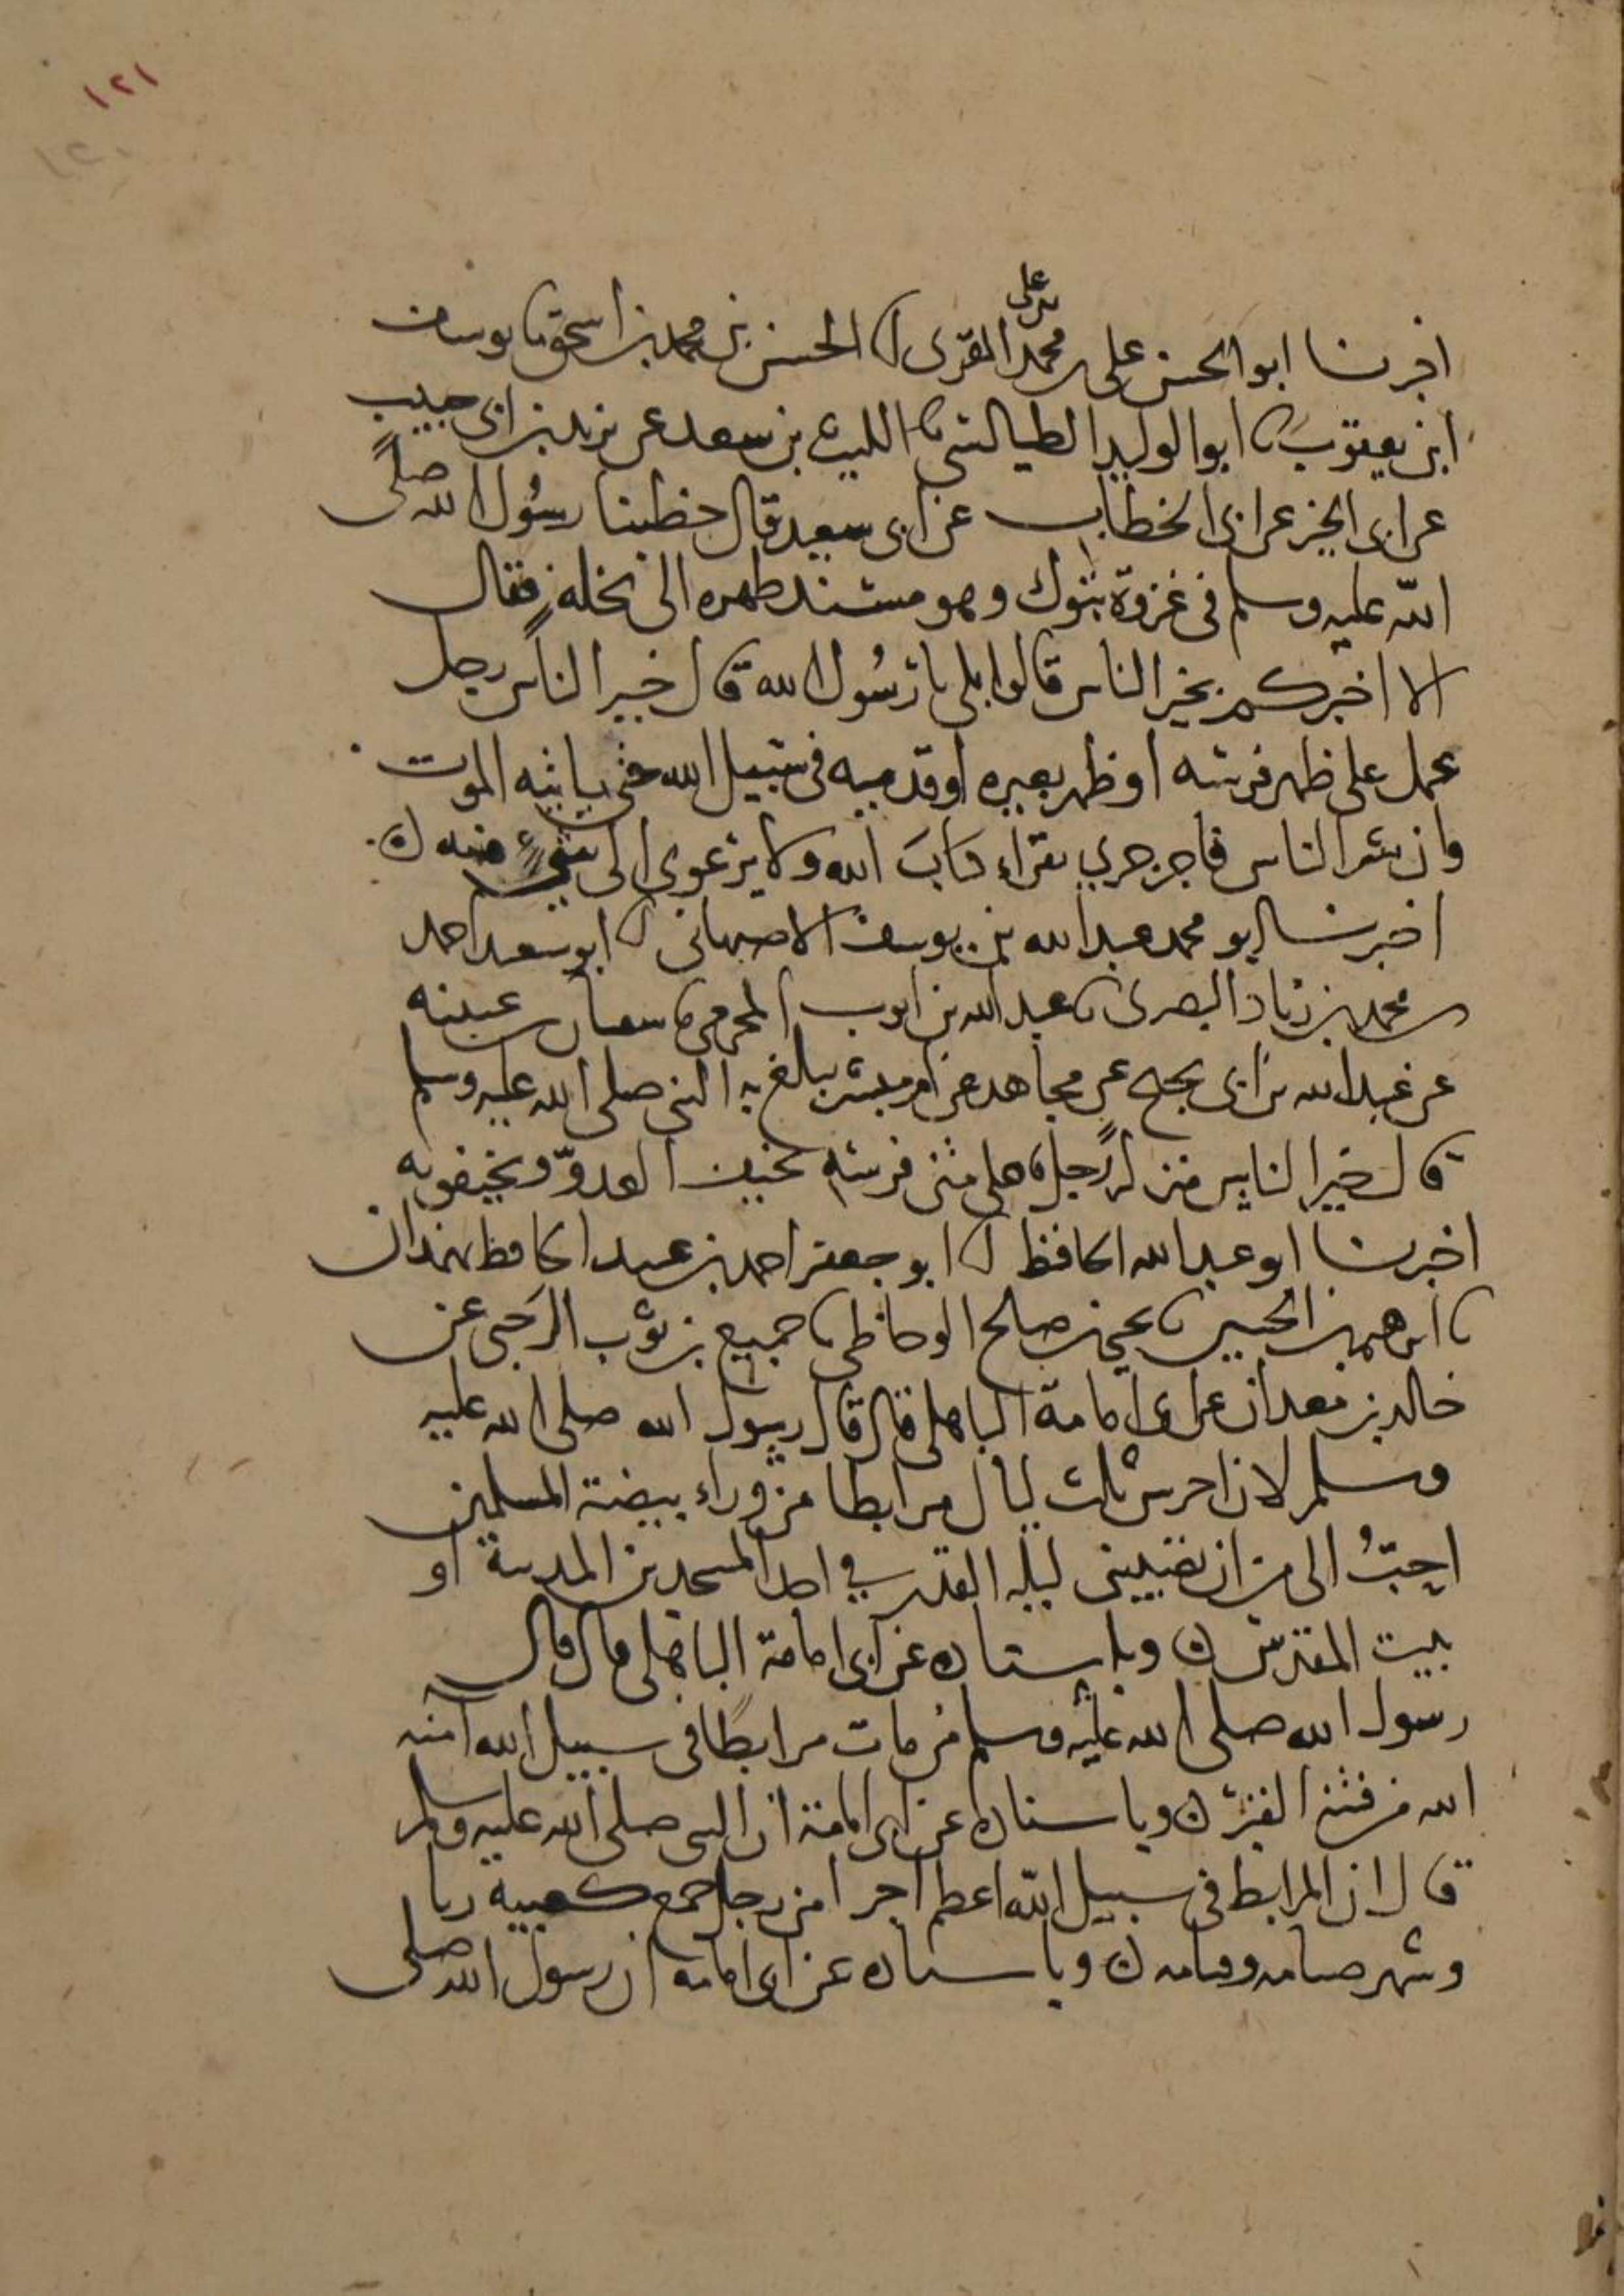 ١٢١
١٢٠
اخبرنا ابو الحسن على بن محمد بن على المقرى انا الحسن بن محمد بن اسحق نا يوسف
ابن يعقوب نا ابو الوليد الطيالسى نا الليث بن سعد عن يزيد بن ابى حبيب
عن ابى الخير عن ابى الخطاب عن ابى سعيد قال خطبنا رسول الله صلى
الله عليه وسلم فى غزوة تبوك وهو مسند ظهره الى نخلة فقال
الا اخبركم بخير الناس قالوا بلى يا رسول الله قال خير الناس رجل
عمل على ظهر فرسه او ظهر بعيره او قدميه فى سبيل الله حتى ياتيه الموت
وان شر الناس فاجر جرى يقراء كتاب الله ولا يرعوى الى شىء منه ن
اخبرنا ابو محمد عبد الله بن يوسف الاصبهانى انا ابو سعيد احمد
بن محمد بن زياد البصرى نا عبد الله بن ايوب المخرمى نا سفيان بن عيينه
عن عبد الله بن ابى نجيح عن مجاهد عن ام مبشر يبلغ به النبى صلى الله عليه وسلم
قال خير الناس منزلة رجل على متن فرسه يخيف العدوّ ويخيفونه
اخبرنا ابو عبد الله الحافظ انا ابو جعفر احمد بن عبيد الحافظ بهمدان
نا ابرهيم بن الحسين نا يحيى بن صالح الوحاظى نا جميع بن ثوب الرحبى عن
خالد بن معدان عن ابى امامة الباهلى قال قال رسول الله صلى الله عليه
وسلم لان احرس ثلث ليال مرابطا من وراء بيضة المسلمين
احبّ الى من ان تصيبنى ليلة القدر في احد المسجدين المدينة او
بيت المقدس ن وباسناده عن ابى امامة الباهلى قال قال
رسول الله صلى الله عليه وسلم من مات مرابطا فى سبيل الله آمنه
الله من فتنة القبر ن وباسناده عن ابى امامة ان النبى صلى الله عليه وسلم
قال ان المرابط فى سبيل الله اعظم اجرا من رجل جمع كعبيه
وشهر صامه وقامه ن وباسناده عن ابى امامة ان رسول الله صلى